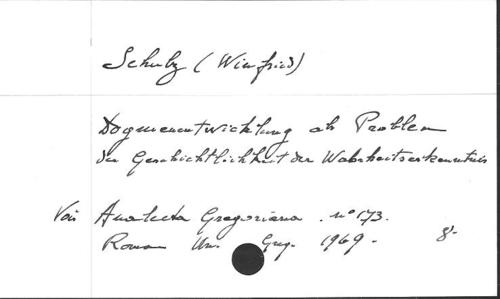 Schulz (Winfried)
Dogmenentwicklung als Problem
der Geschichtlichkeit der Wahrheitserkenntnis
Voir Analecta Gregoriana. nº 173.
Romae Un. Greg. 1969. 8º